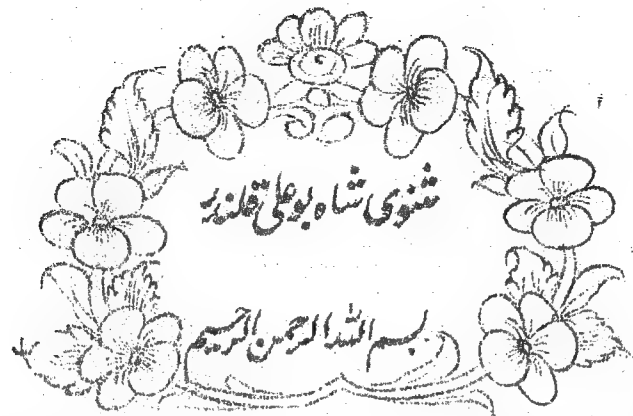 مثنوی شاہ بو علی قلندر
بسم اللہ الرحمن الرحیم